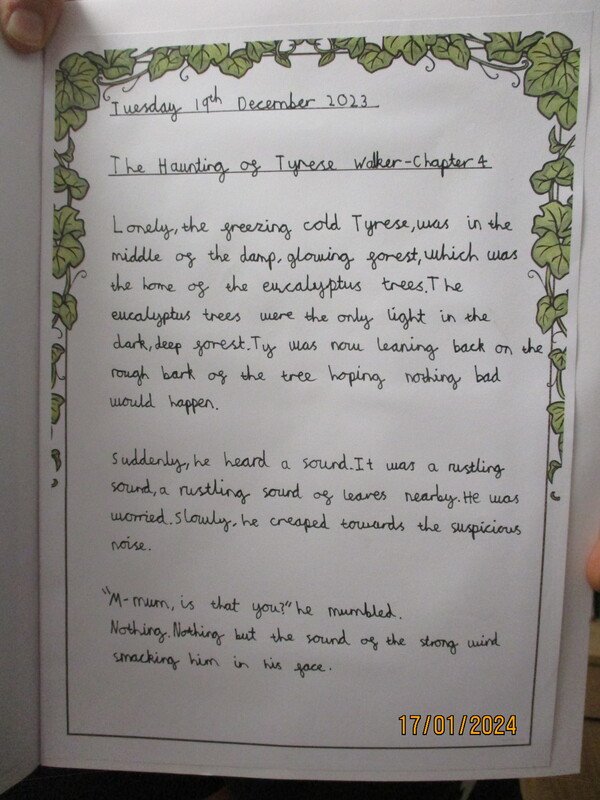 Tuesday 19th December 2023
The Haunting of Tyrese Walker-Chapter 4
Lonely, the freezing cold Tyrese, was in the
middle of the damp, glowing forest, which was
the home of the eucalyptus trees. The
eucalyptus trees were the only light in the
dark, deep forest. Ty was now leaning back on the
rough bark of the tree hoping nothing bad
would happen.
Suddenly, he heard a sound. It was a rustling
sound, a rustling sound of leaves nearby. He was
worried. Slowly, he creaped towards the suspicious
noise.
"M-mum, is that you?" he mumbled.
Nothing. Nothing but the sound of the strong wind
smacking him in his face.
17/01/2024